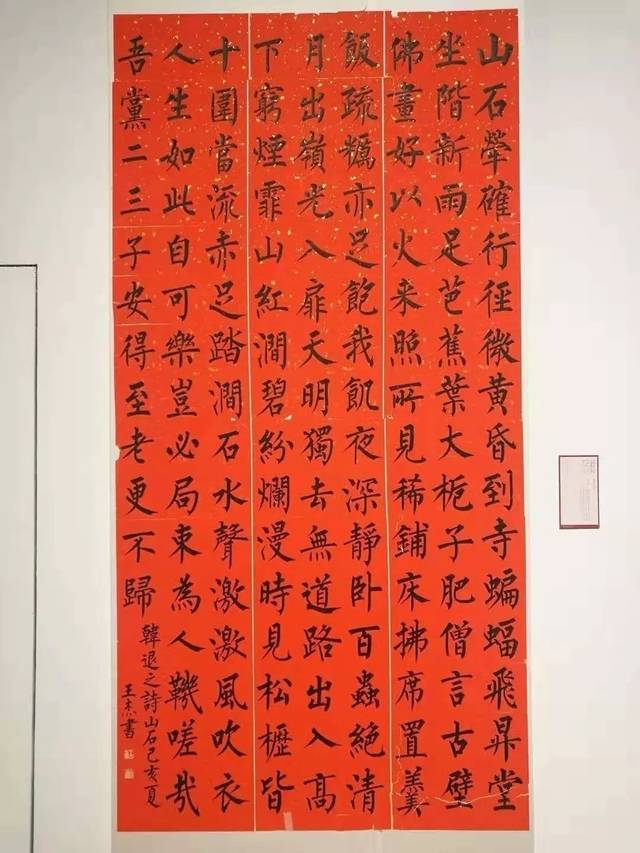 山石犖確行徑微黄昏到寺蝙蝠飛昇堂
坐階新雨足芭蕉葉大梔子肥僧言古壁
佛畫好以火来照所見稀鋪床拂席置羹
飯疏糲亦足飽我飢夜深靜卧百蟲絶清
月出嶺光入扉天明獨去無道路出入高
下窮煙霏山紅澗碧紛爛漫時見松櫪皆
十圍當流赤足踏澗石水聲激激風吹衣
人生如此自可樂豈必局束為人鞿嗟哉
吾黨二三子安得至老更不歸
韓退之詩山石己亥夏
王杰書